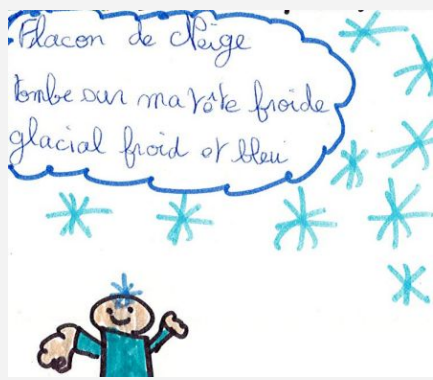 Flacon de Neige
tombe sur ma tête froide
glacial froid et bleu